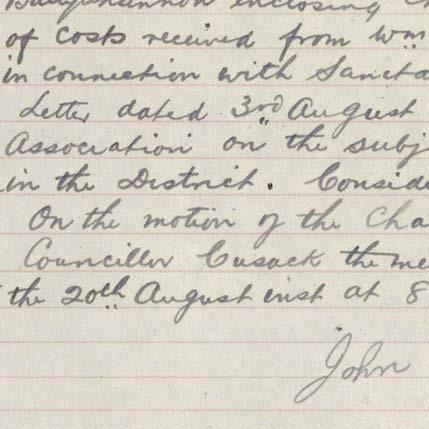 Ballyshannon enclosing
of costs received from Wm
in connection with Sanita
Letter dated 3rd August
Association on the subj
in the District. Conside
On the motion of the Cha
Councillor Cusack the me
the 20th August inst at 8
John